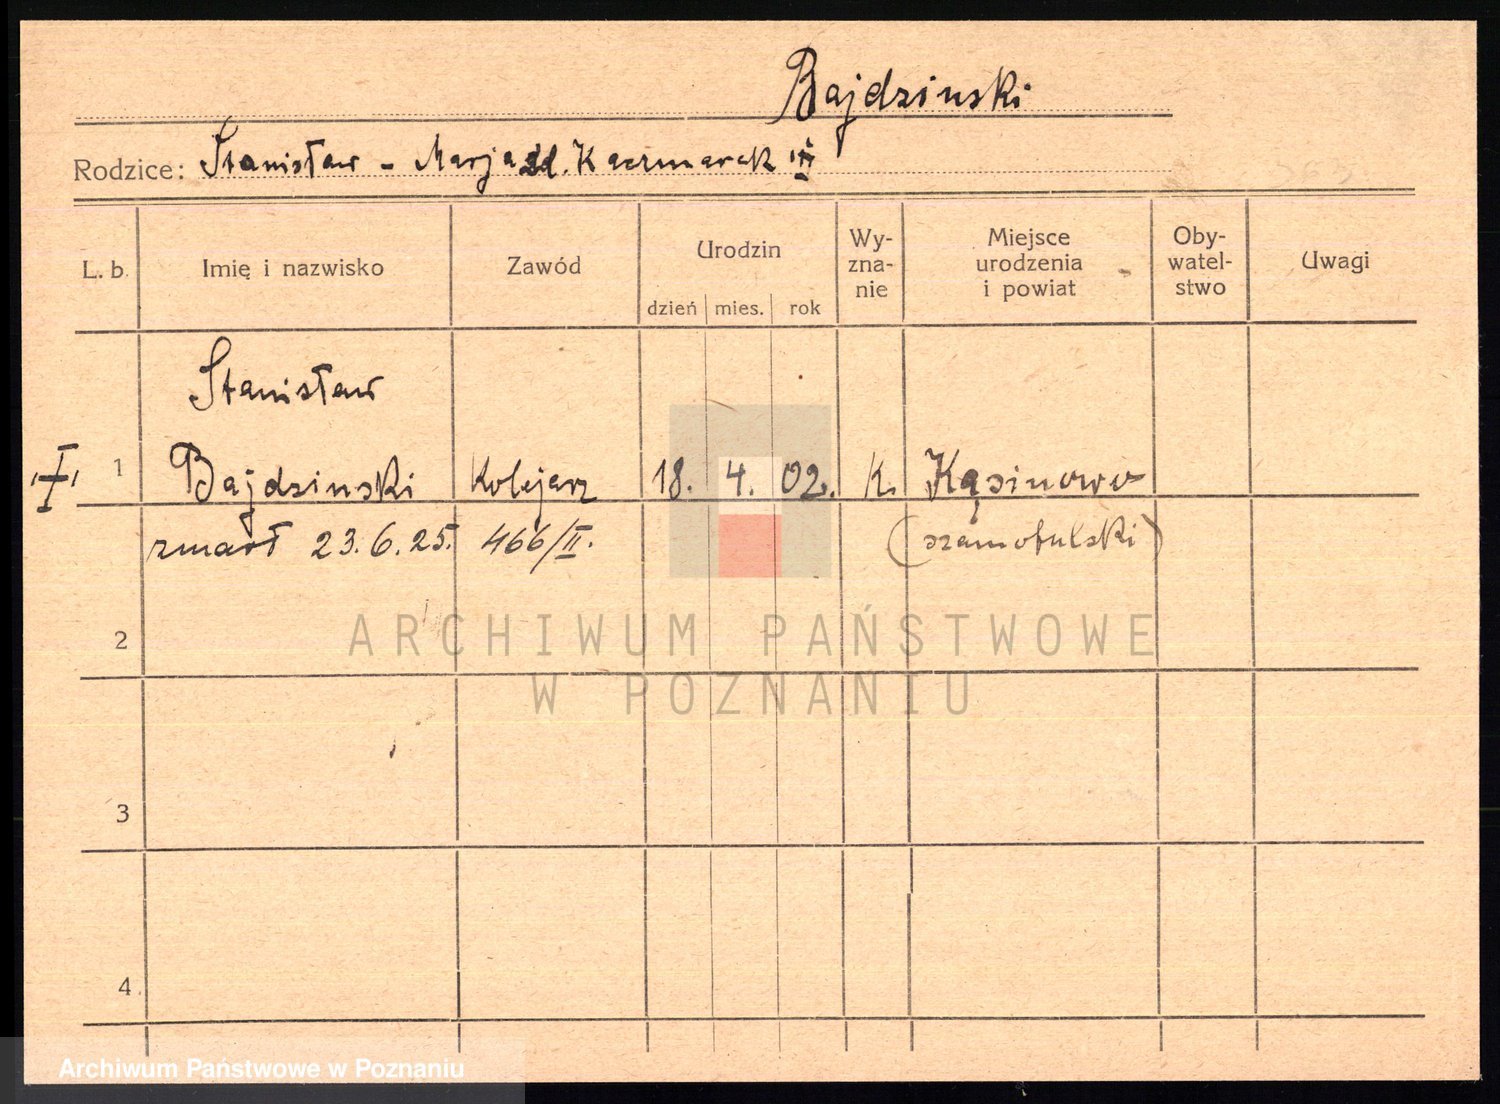 Bajdzinski
Rodzice: Stanisław - Marja zd. Kaczmarek
L. b. Imię i nazwisko Zawód Urodzin dzień mies. rok Wy-zna-nie Miejsce urodzenia i powiat Oby-watel-stwo Uwagi
Stanisław
1 Bajdzinski Kolejarz 18. 4. 02. K. Kąsinowo
zmarł 23.6.25. 466/II. (szamotulski)
2
ARCHIWUM PAŃSTWOWE
W POZNANIU
3
4
Archiwum Państwowe w Poznaniu